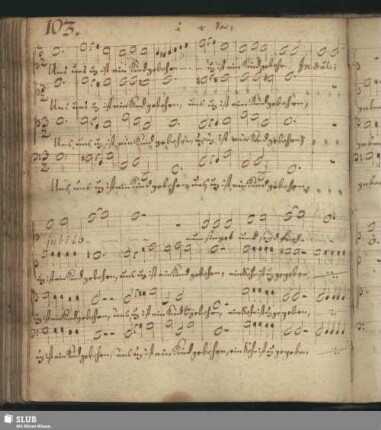 103.
Uns, uns ist ein Kind gebohren, ist ein Kind gebohren. In dul:
Uns, uns ist ein Kind gebohren, uns ist ein Kind gebohren,
Uns, uns ist ein Kind gebohren, uns ist ein Kind gebohren,
Uns, uns ist ein Kind gebohren, uns ist ein Kind gebohren,
jubilo nun singet und seyd froh
ist ein Kind gebohren, uns ist ein Kind gebohren, ein Sohn ist gegeben,
ist ein Kind gebohren, uns ist ein Kind gebohren, ein Sohn ist gegeben,
ist ein Kind gebohren, uns ist ein Kind gebohren, ein Sohn ist gegeben,
SLUB
Wir führen Wissen.